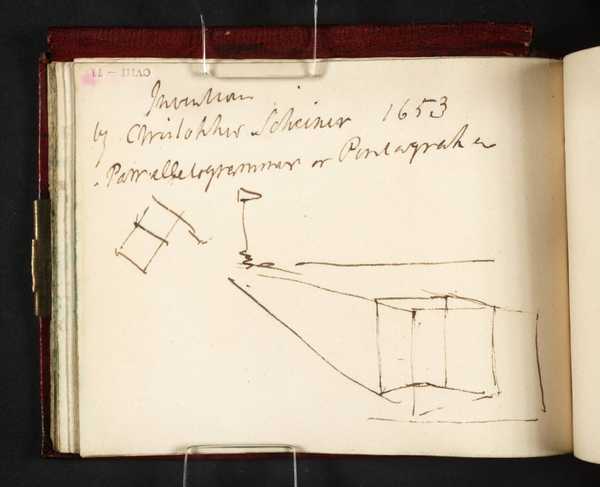 CVIII — 11
Invention
by Christopher Scheiner 1653
Parrallelogrammar or Pentagraph